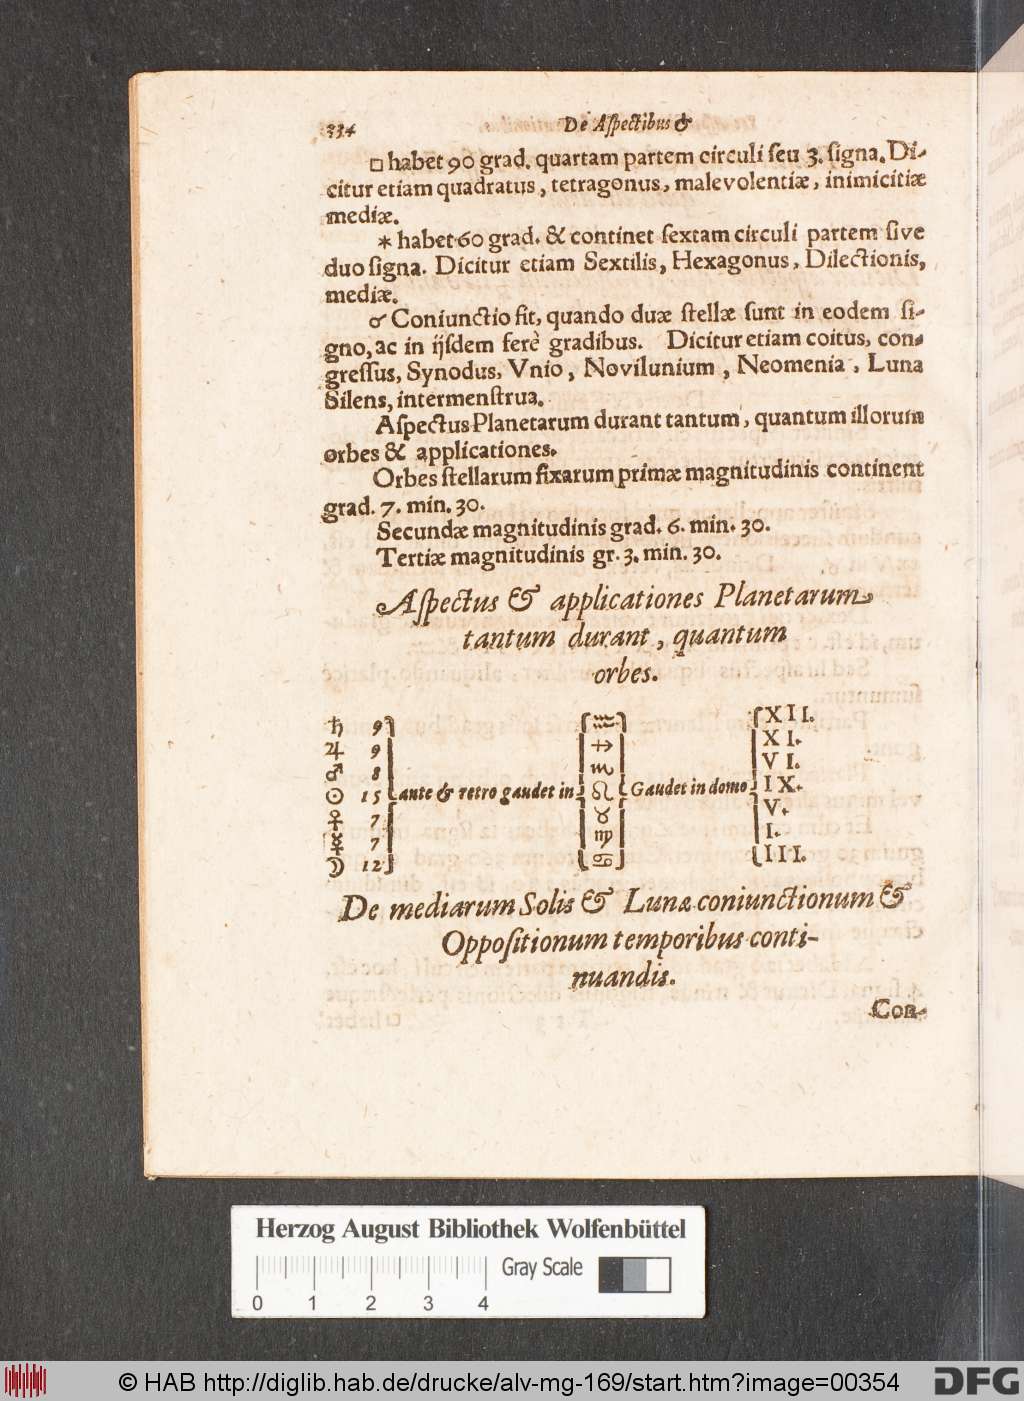 334 De Aſpectibus &
□ habet 90 grad. quartam partem circuli ſeu 3. ſigna. Di-
citur etiam quadratus, tetragonus, malevolentiæ, inimicitiæ
mediæ.
⚹ habet 60 grad. & continet ſextam circuli partem ſive
duo ſigna. Dicitur etiam Sextilis, Hexagonus, Dilectionis,
mediæ.
☌ Coniunctio fit, quando duæ ſtellæ ſunt in eodem ſi-
gno, ac in ijſdem ferè gradibus. Dicitur etiam coitus, con-
greſſus, Synodus, Vnio, Novilunium, Neomenia, Luna
Silens, intermenſtrua.
Aſpectus Planetarum durant tantum, quantum illorum
orbes & applicationes.
Orbes ſtellarum fixarum primæ magnitudinis continent
grad. 7. min. 30.
Secundæ magnitudinis grad. 6. min. 30.
Tertiæ magnitudinis gr. 3. min. 30.
Aſpectus & applicationes Planetarum
tantum durant, quantum
orbes.
♄ 9 ♒ XII.
♃ 9 ♐ XI.
♂ 8 ♏ VI.
☉ 15 ante & retro gaudet in ♌ Gaudet in domo IX.
♀ 7 ♉ V.
☿ 7 ♍ I.
☽ 12 ♋ III.
De mediarum Solis & Lunæ coniunctionum &
Oppoſitionum temporibus conti-
nuandis.
Con-
Herzog August Bibliothek Wolfenbüttel
Gray Scale
0 1 2 3 4
© HAB http://diglib.hab.de/drucke/alv-mg-169/start.htm?image=00354 DFG